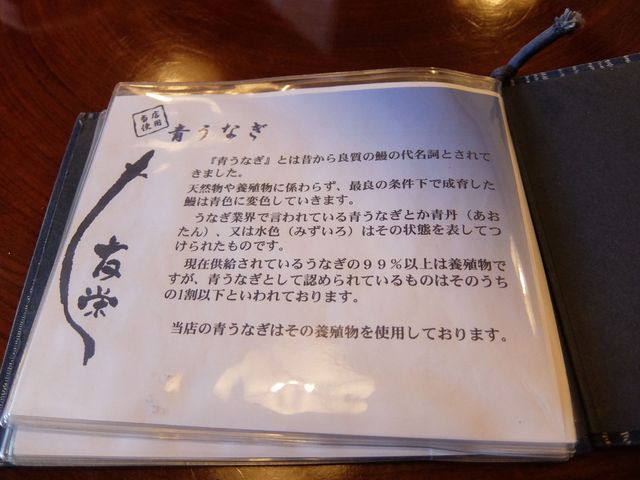 当店
使用
青うなぎ
『青うなぎ』とは昔から良質の鰻の代名詞とされて
きました。
天然物や養殖物に係わらず、最良の条件下で成育した
鰻は青色に変色していきます。
うなぎ業界で言われている青うなぎとか青丹（あお
たん）、又は水色（みずいろ）はその状態を表してつ
けられたものです。
現在供給されているうなぎの９９％以上は養殖物で
すが、青うなぎとして認められているものはそのうち
の1割以下といわれております。
当店の青うなぎはその養殖物を使用しております。
友栄